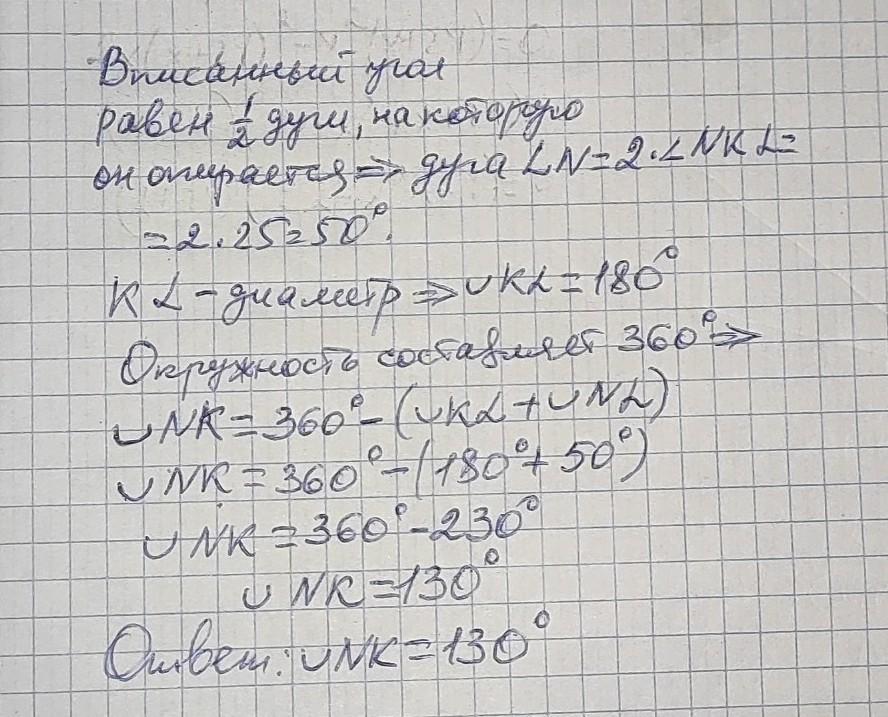 Вписанный угол
равен 1/2 дуги, на которую
он опирается => дуга LN = 2·∠NKL =
= 2·25 = 50°.
KL - диаметр => ∪KL = 180°
Окружность составляет 360° =>
∪NK = 360° - (∪KL + ∪NL)
∪NK = 360° - (180° + 50°)
∪NK = 360° - 230°
∪NK = 130°
Ответ: ∪NK = 130°